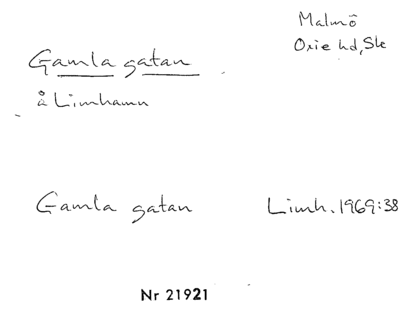 Malmö
Oxie hd, Sk
Gamla gatan
å Limhamn
Gamla gatan Limh. 1969:38
Nr 21921